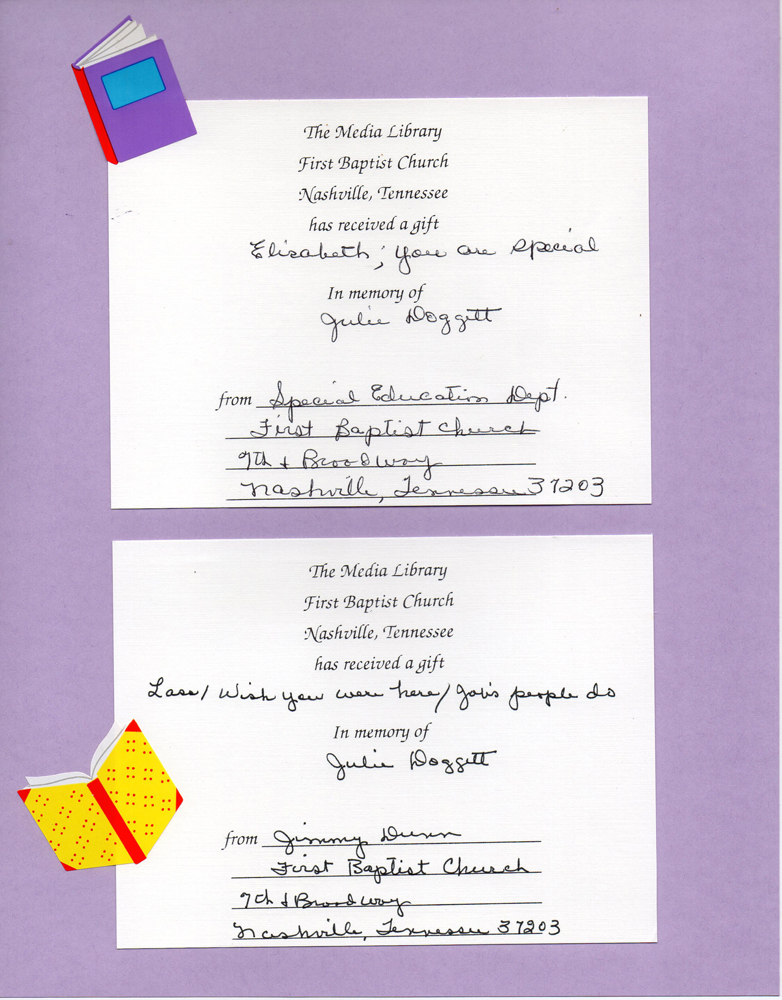 The Media Library
First Baptist Church
Nashville, Tennessee
has received a gift
Elisabeth; you are special
In memory of
Julie Doggett
from Special Education Dept.
First Baptist Church
7th & Broadway
Nashville, Tennessee 37203
The Media Library
First Baptist Church
Nashville, Tennessee
has received a gift
Wish you were here/ people do
In memory of
Julie Doggett
from Jimmy Dunn
First Baptist Church
7th & Broadway
Nashville, Tennessee 37203